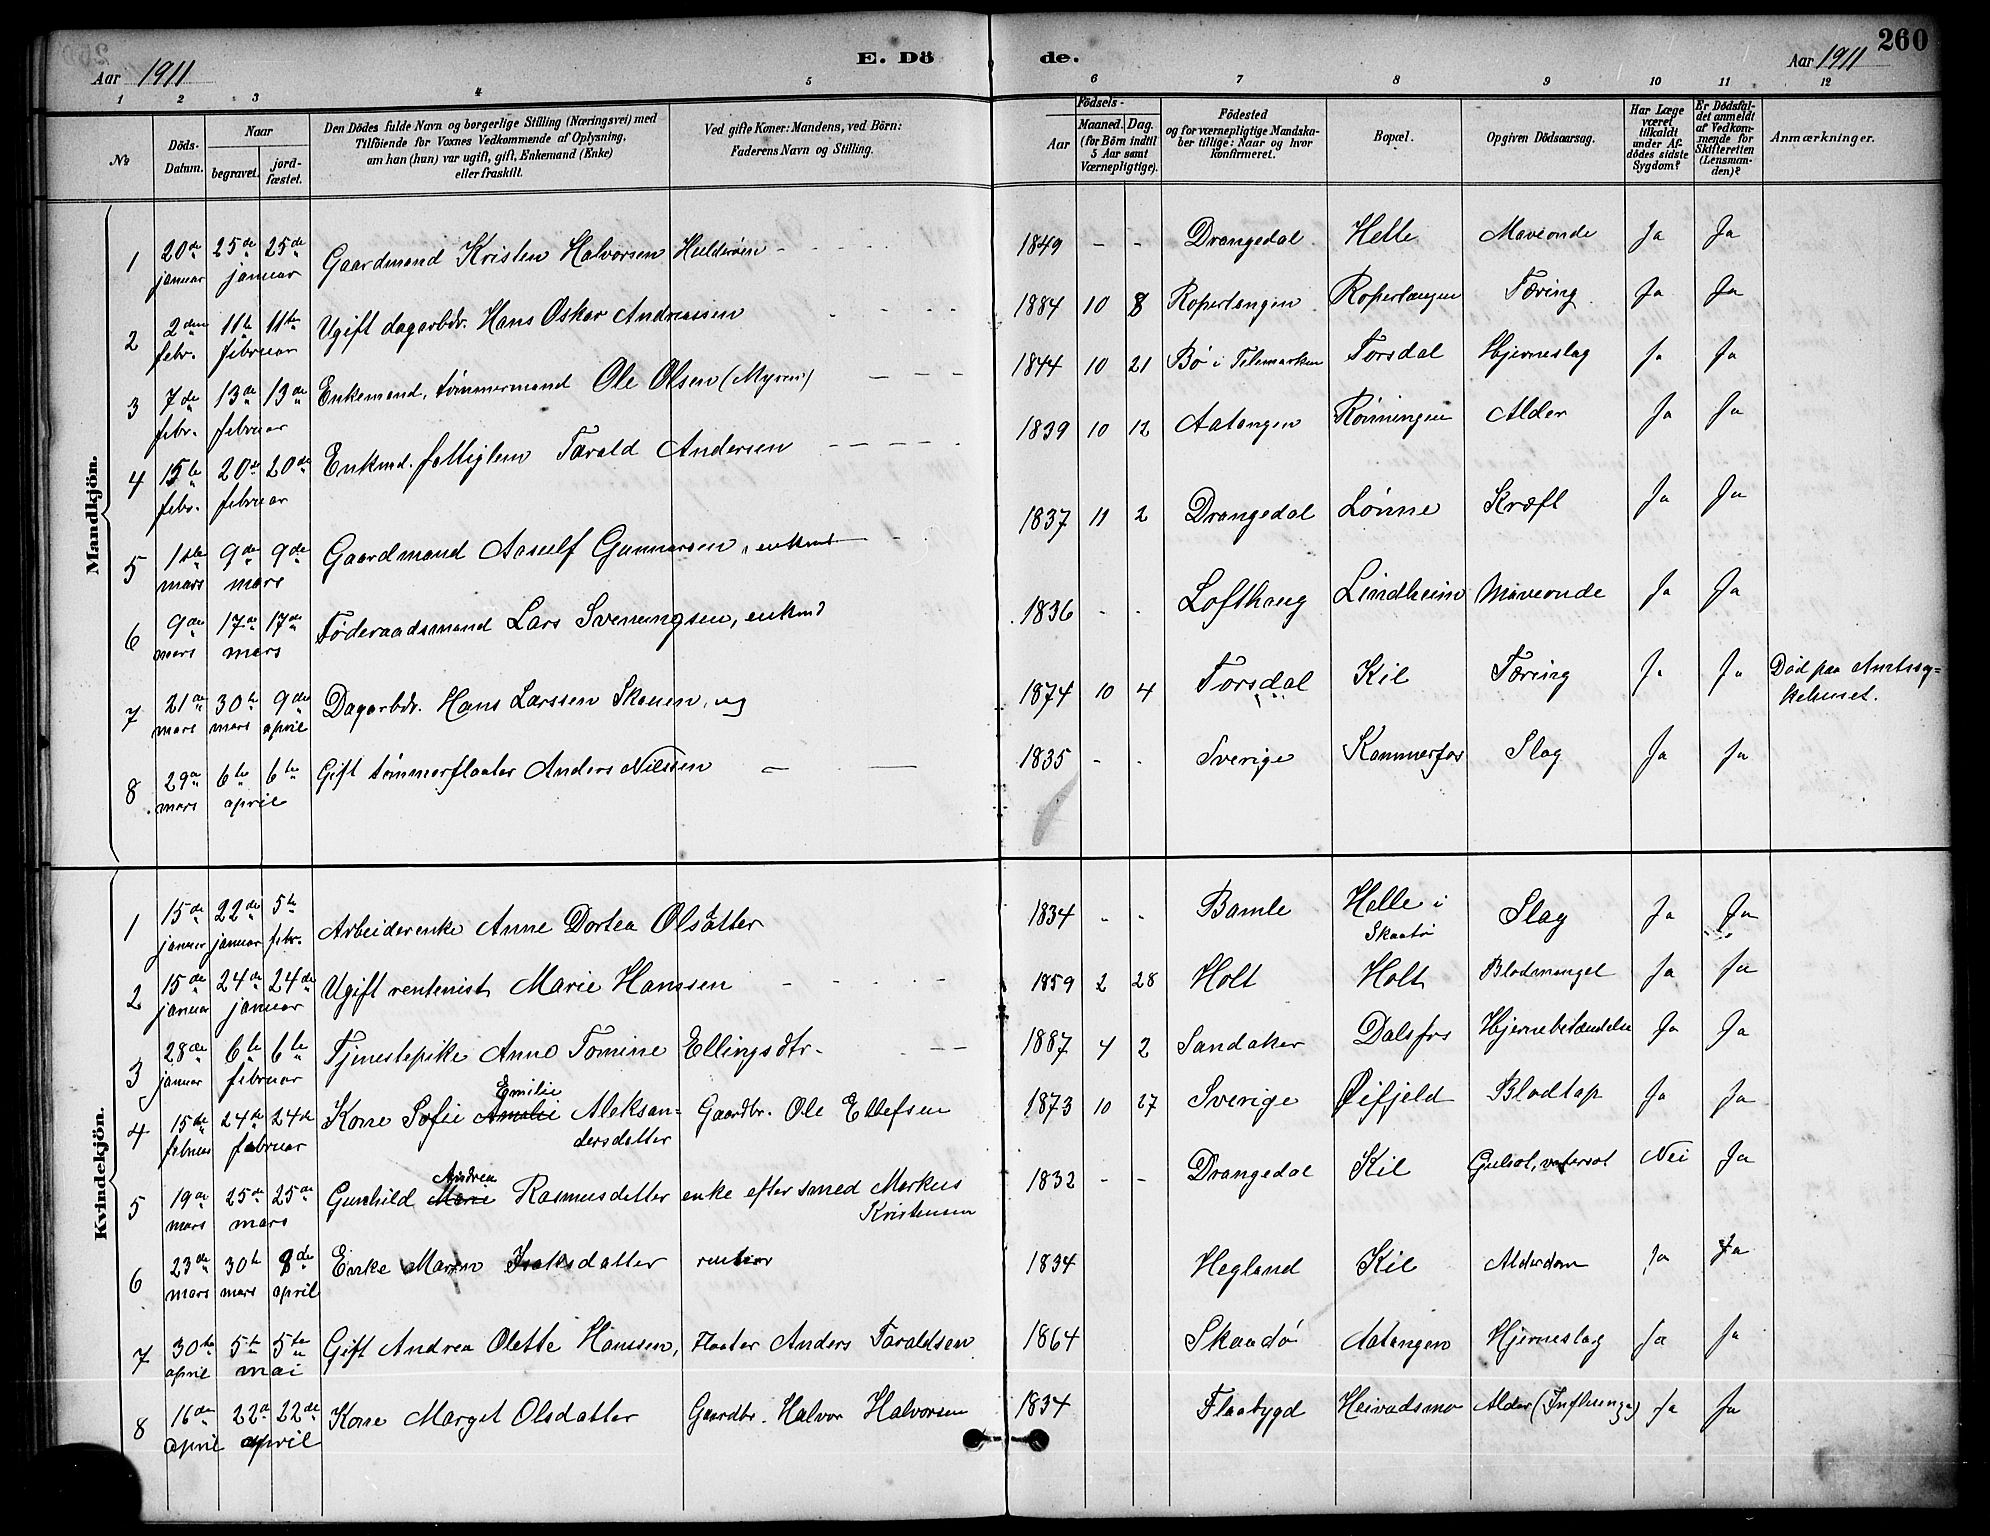 260
Aar 1911 E. Dö de. Aar 1911
1 2 3 4 5 6 7 8 9 10 11 12
№ Döds-Datum. Naar begravet. jord-fæstet. Den Dödes fulde Navn og borgerlige Stilling (Næringsvei) med Tilföiende for Voxnes Vedkommende af Oplysning, om han (hun) var ugift, gift, Enkemand (Enke) eller fraskilt. Ved gifte Koner: Mandens, ved Börn: Faderens Navn og Stilling. Födsels- Aar Maaned. Dag. (for Börn indtil 5 Aar samt Værnepligtige). Födested og for værnepligtige Mandskaber tillige: Naar og hvor konfirmeret. Bopæl. Opgiven Dödsaarsag. Har Læge været tilkaldt under Afdödes sidste Sygdom? Er Dödsfaldet anmeldt af Vedkommende for Skifteretten (Lensmanden)? Anmærkninger.
Mandkjön.
1 20de januar 25de 25de januar Gaardmand Kristen Halvorsen Hulderøen - 1849 - - Drangedal Helle Maveonde Ja Ja
2 2den febr. 11te 11te februar Ugift dagarbdr. Hans Oskar Andreassen 1884 10 8 Ropertangen Ropertangen Tæring Ja Ja
3 7de febr. 13de 13de februar Enkemand, tømmermand Ole Olsen (Myren) 1844 10 21 Bø i Telemarken Torsdal Hjerneslag Ja Ja
4 15te febr. 20de 20de februar Enkmd. fattiglem Tarald Andersen 1839 10 12 Aatangen Rønningen Alder Ja Ja
5 1ste mars 9de 9de mars Gaardmand Aasulf Gunnarsen, enkmd 1837 11 2 Drangedal Lønne Kræft Ja Ja
6 9de mars 17de 17de mars Føderaadsmand Lars Svenungsen, enkmd 1836 - - Lofthaug Lindheim Maveonde Ja Ja
7 21de mars 30te mars 9de april Dagarbdr. Hans Larssen Skauen, ug 1874 10 4 Torsdal Kil Tæring Ja Ja Død paa Amtssy-kehuset.
8 29de mars 6te 6te april Gift tømmerfløter Anders Nilssen 1835 - - Sverige Kammerfos Slag Ja Ja
Kvindekjön.
1 15de januar 22de januar 5te febr. Arbeiderenke Anne Dortea Olsdatter 1834 - - Bamle Helle i Skaatø Slag Ja Ja
2 15de januar 24de 24de januar Ugift rentenist Marie Hanssen 1859 2 28 Holt Holt Blodmangel Ja Ja
3 28de januar 6te 6te februar Tjenestepike Anne Tomine Ellingsdtr. 1887 4 2 Sandaker Dalsfos Hjernebetændelse Ja Ja
4 15de februar 24de 24de februar Kone Sofie Amalie Emilie Aleksan-dersdatter Gaardbr. Ole Ellefsen 1873 10 27 Sverige Øifjeld Blodtap Ja Ja
5 19de mars 25de 25de mars Gunhild Marie Andrea Rasmusdatter enke efter smed Markus Kristensen 1832 - - Drangedal Kil Gulsot, vatersot Nei Ja
6 23de mars 30te mars 8de april Enke Maren Isaksdatter rentier 1834 Hegland Kil Alderdom Ja Ja
7 30te april 5te 5te mai Gift Andrea Olette Hanssen, Fløter Anders Taraldsen 1864 Skaadø Aatangen Hjerneslag Ja Ja
8 16de april 22de 22de april Kone Marget Olsdatter Gaardbr. Halvor Halvorsen 1834 Flaabygd Heivadsmo Alder (Influenza) Ja Ja